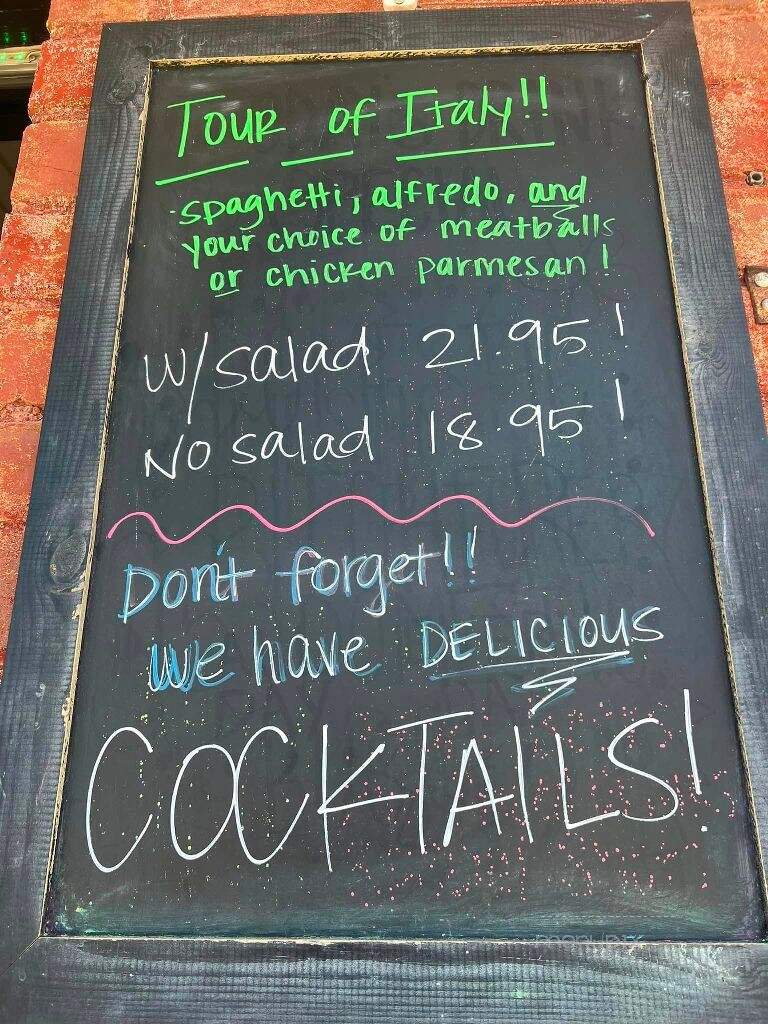 Tour of Italy!!
spaghetti, alfredo, and
your choice of meatballs
or chicken parmesan!
W/salad 21.95!
No salad 18.95!
Don't forget!!
We have DELICIOUS
COCKTAILS!